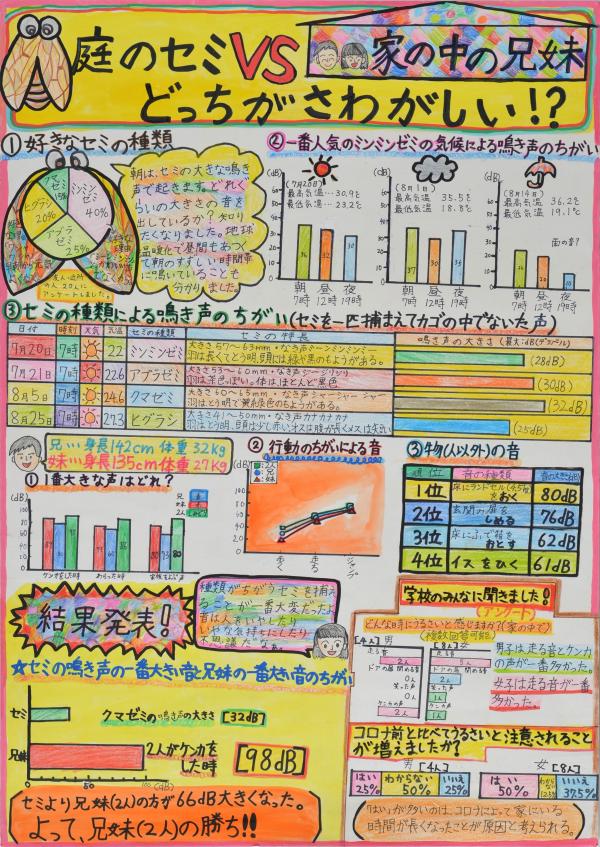 庭のセミVS家の中の兄妹
どっちがさわがしい!?
①好きなセミの種類
クマゼミ
15%
ミンミンゼミ
40%
ヒグラシ
20%
アブラゼミ
25%
友人・近所
の人20人に
アンケートしました。
朝は、セミの大きな鳴き
声で起きます。どれく
らいの大きさの音を
出しているか?知り
たくなりました。地球
温暖化で昼間もあつく
て朝のすずしい時間帯
に鳴いていることも
分かりました。
②一番人気のミンミンゼミの気候による鳴き声のちがい
(dB)
(7月20日)
最高気温…30.9℃
最低気温…23.2℃
36
32
30
朝
7時
昼
12時
夜
19時
(dB)
(8月1日)
最高気温 35.5℃
最低気温 18.8℃
37
30
35
朝
7時
昼
12時
夜
19時
(dB)
(8月14日)
最高気温 36.2℃
最低気温 19.1℃
雨の音?
朝
7時
昼
12時
夜
19時
③セミの種類による鳴き声のちがい(セミを一匹捕まえてカゴの中でないた声)
日付 時刻 天気 気温 セミの種類 セミの特長 鳴き声の大きさ(最大:dB(デシベル)
7月20日 7時 22 ミンミンゼミ 大きさ57〜63mm・なき声ミーンミンミンミー
羽は長くてとう明。頭には緑や黒のもようがある。 (28dB)
7月21日 7時 22.6 アブラゼミ 大きさ53〜60mm・なき声ジージリジリ
羽は茶色っぽい。体はほとんど黒色 (30dB)
8月5日 7時 24.6 クマゼミ 大きさ60〜65mm・なき声シャーシャーシャー
(32dB)
8月25日 7時 27.3 ヒグラシ 大きさ41〜50mm・なき声カナカナカナ
(25dB)
兄…身長142cm 体重32kg
妹…身長135cm 体重27kg
①1番大きな声はどれ?
(dB)
兄
妹
2人
ケンカをした時
わらった時
②行動のちがいによる音
(dB)
2人
兄
妹
歩く
走る
ジャンプ
③物(人以外)の音
順位 音の種類 音の大きさ(dB)
1位 床にランドセル(4.5kg)をおく 80dB
2位 玄関の扉をしめる 76dB
3位 床にふで箱をおとす 62dB
4位 イスをひく 61dB
結果発表!
種類がちがうセミを捕まえ
ることが一番大変だったよ。
音は人をいやしたり
いやな気持ちにしたり
不思議だなぁ。
☆セミの鳴き声の一番大きい音と兄妹の一番大きい音のちがい
セミ クマゼミの鳴き声の大きさ [32dB]
兄妹 2人がケンカを
した時 [98dB]
50 100 (dB)
セミより兄妹(2人)の方が66dB大きくなった。
よって、兄妹(2人)の勝ち!!
学校のみんなに聞きました!
(アンケート)
どんな時にうるさいと感じますか?(家の中で)
(複数回答可能)
[4人] 男
走る音
2人
ドアの開閉める音
0人
笑った声
0人
ケンカの声
2人
[8人] 女
走る音
5人
ドアの開閉める音
2人
笑った声
1人
ケンカの声
男子は走る音とケンカ
の声が一番多かった。
女子は走る音が一番
多かった。
コロナ前と比べてうるさいと注意されること
が増えましたか?
男[4人]
はい
25%
わからない
50%
いいえ
25%
女[8人]
はい
50%
わからない
12.5%
いいえ
37.5%
「はい」が多いのは、コロナによって家にいる
時間が長くなったことが原因と考えられる。